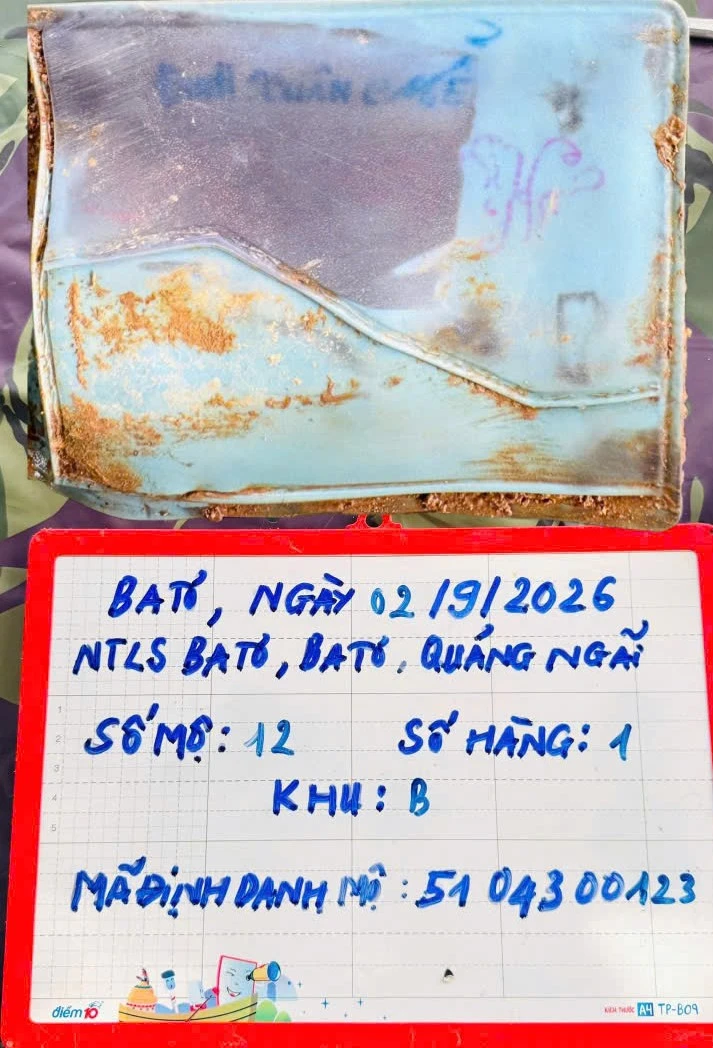 BATƠ, NGÀY 02/9/2026
NTLS BATƠ, BATƠ, QUẢNG NGÃI
SỐ MỘ: 12 SỐ HÀNG: 1
KHU: B
MÃ ĐỊNH DANH MỘ: 51 04300123
điểm 10
KÍCH THƯỚC A4 TP-B09